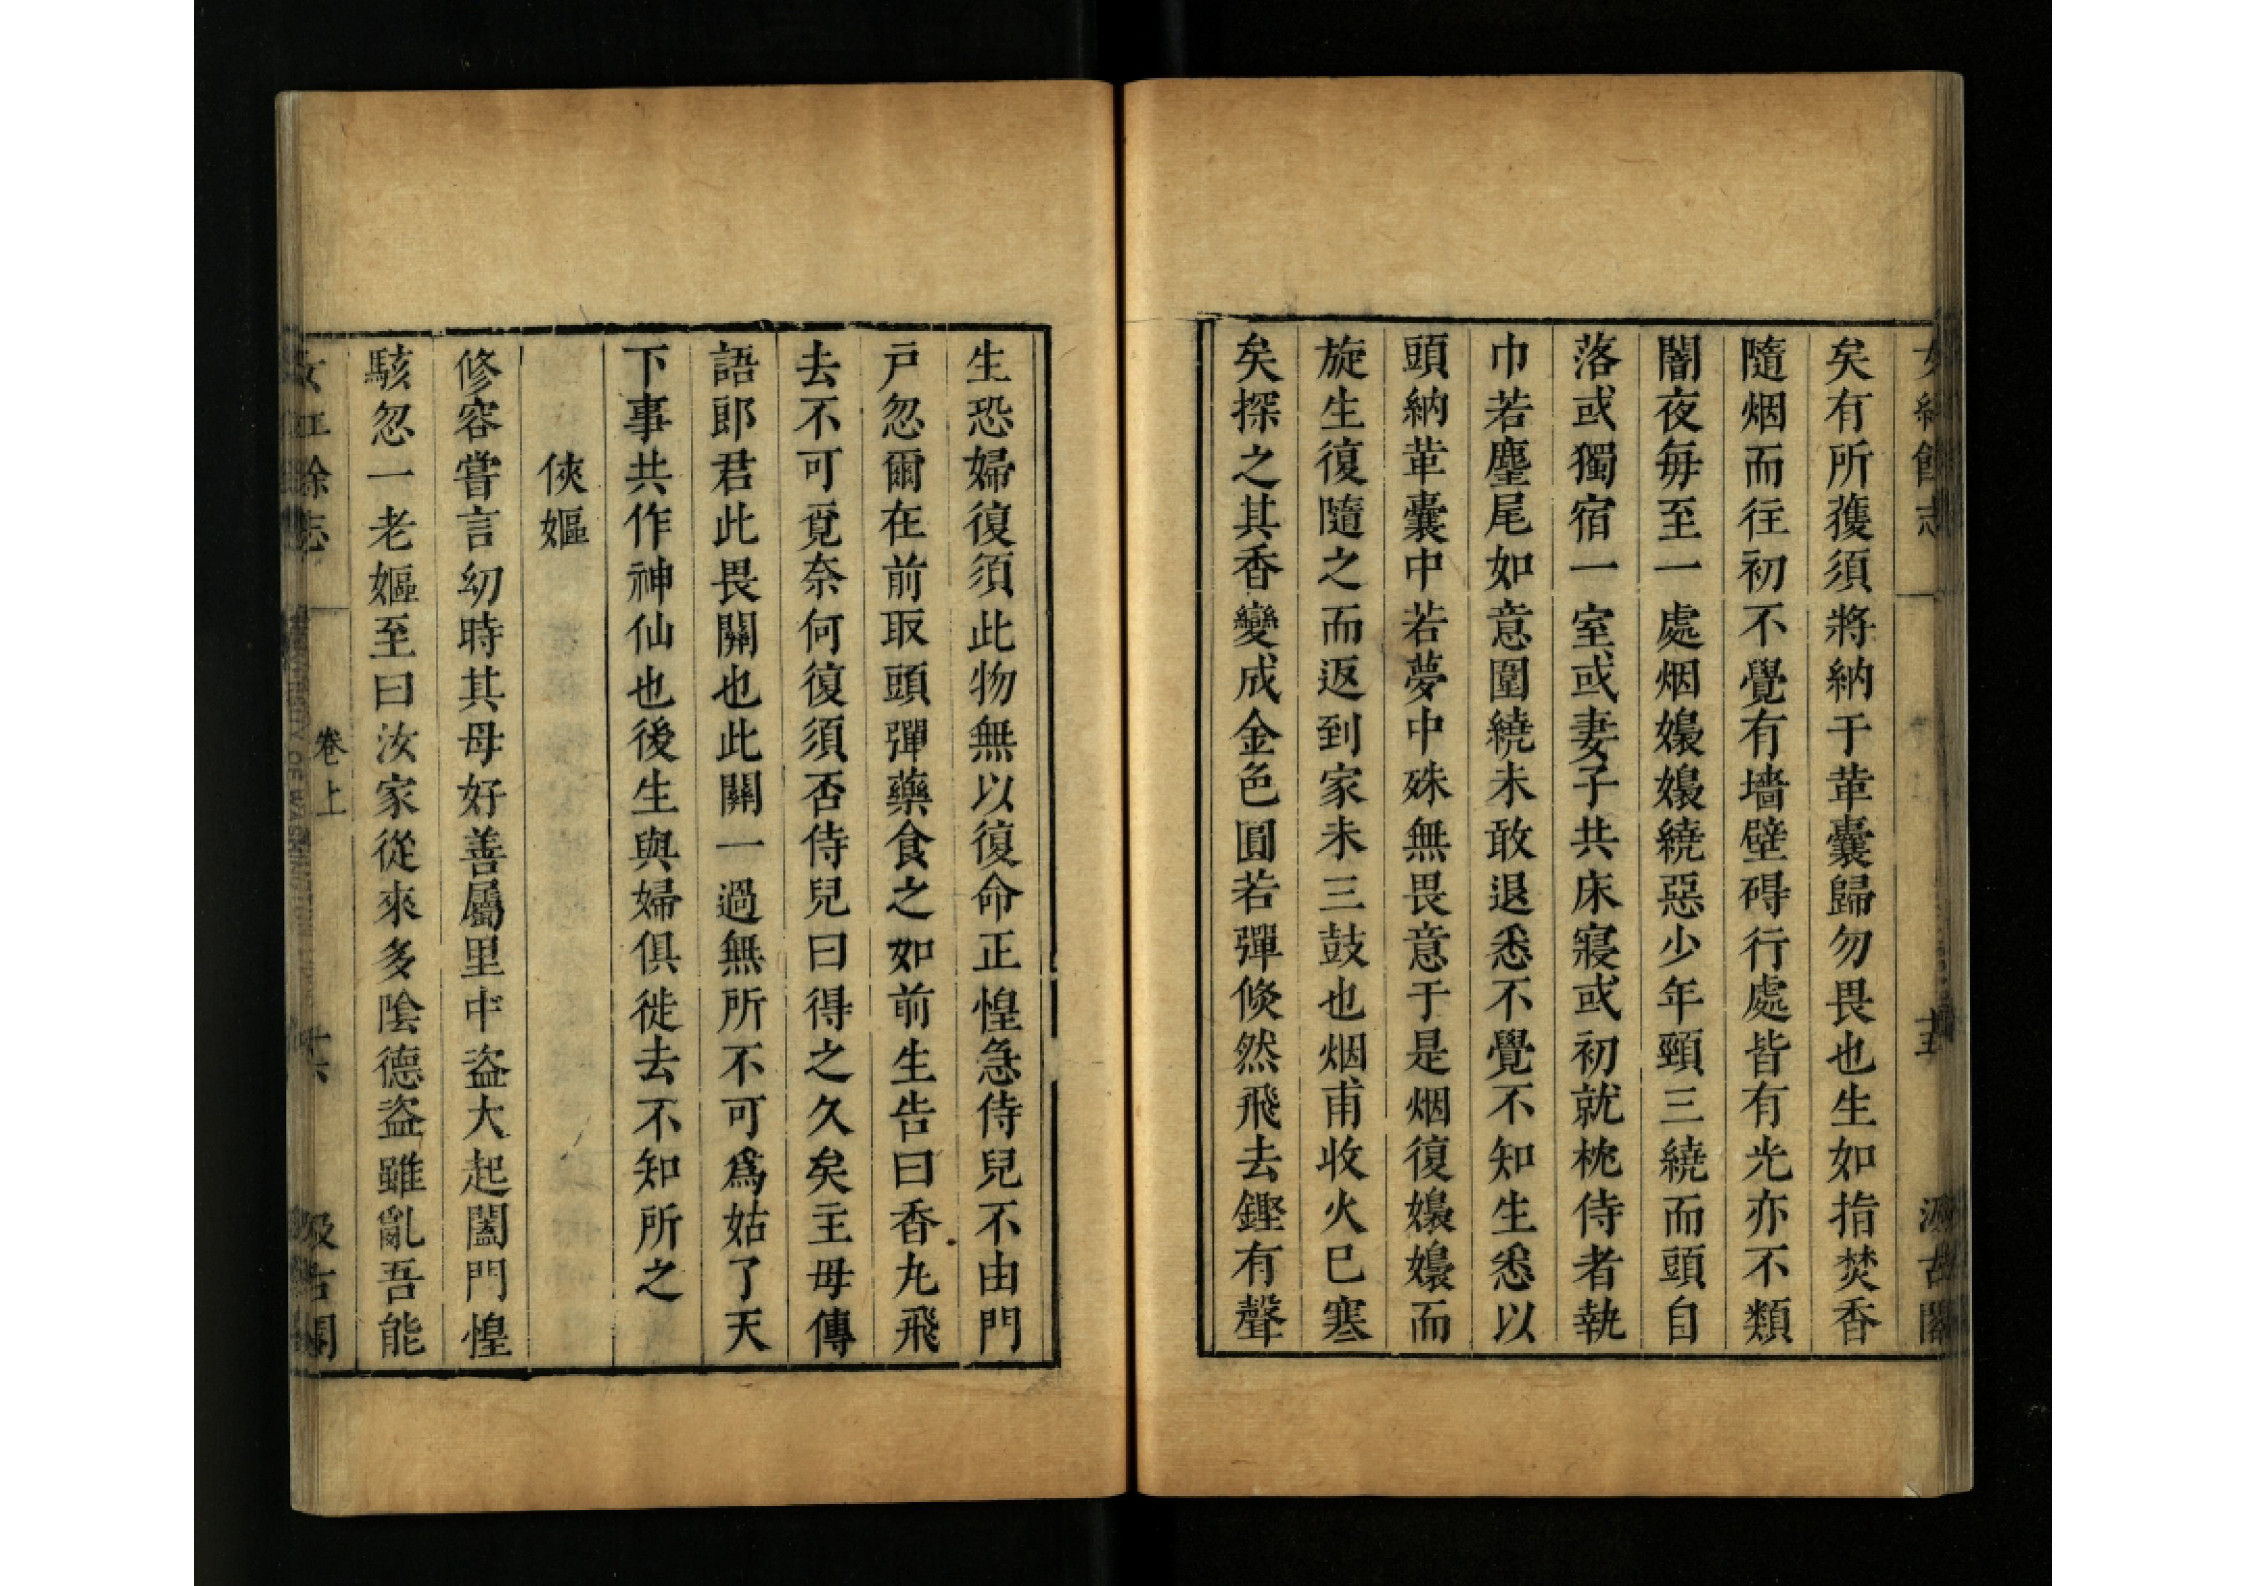 矣有所獲須將納于革囊歸勿畏也生如指焚香
隨烟而往初不覺有墻壁碍行處皆有光亦不類
闇夜每至一處烟嬝嬝繞惡少年頸三繞而頭自
落或獨宿一室或妻子共床寢或初就枕侍者執
巾若麈尾如意圍繞未敢退悉不覺不知生悉以
頭納革囊中若夢中殊無畏意于是烟復嬝嬝而
旋生復隨之而返到家未三鼓也烟甫收火已寒
矣探之其香變成金色圓若彈倏然飛去鏗有聲
生恐婦復須此物無以復命正惶急侍兒不由門
戶忽爾在前取頭彈藥食之如前生告曰香丸飛
去不可覓奈何復須否侍兒曰得之久矣主母傳
語郎君此畏關也此關一過無所不可爲姑了天
下事共作神仙也後生與婦俱徙去不知所之
俠嫗
修容嘗言幼時其母好善屬里中盗大起闔門惶
駭忽一老嫗至曰汝家從來多陰德盗雖亂吾能
女紅餘志
卷上
十六
汲古閣